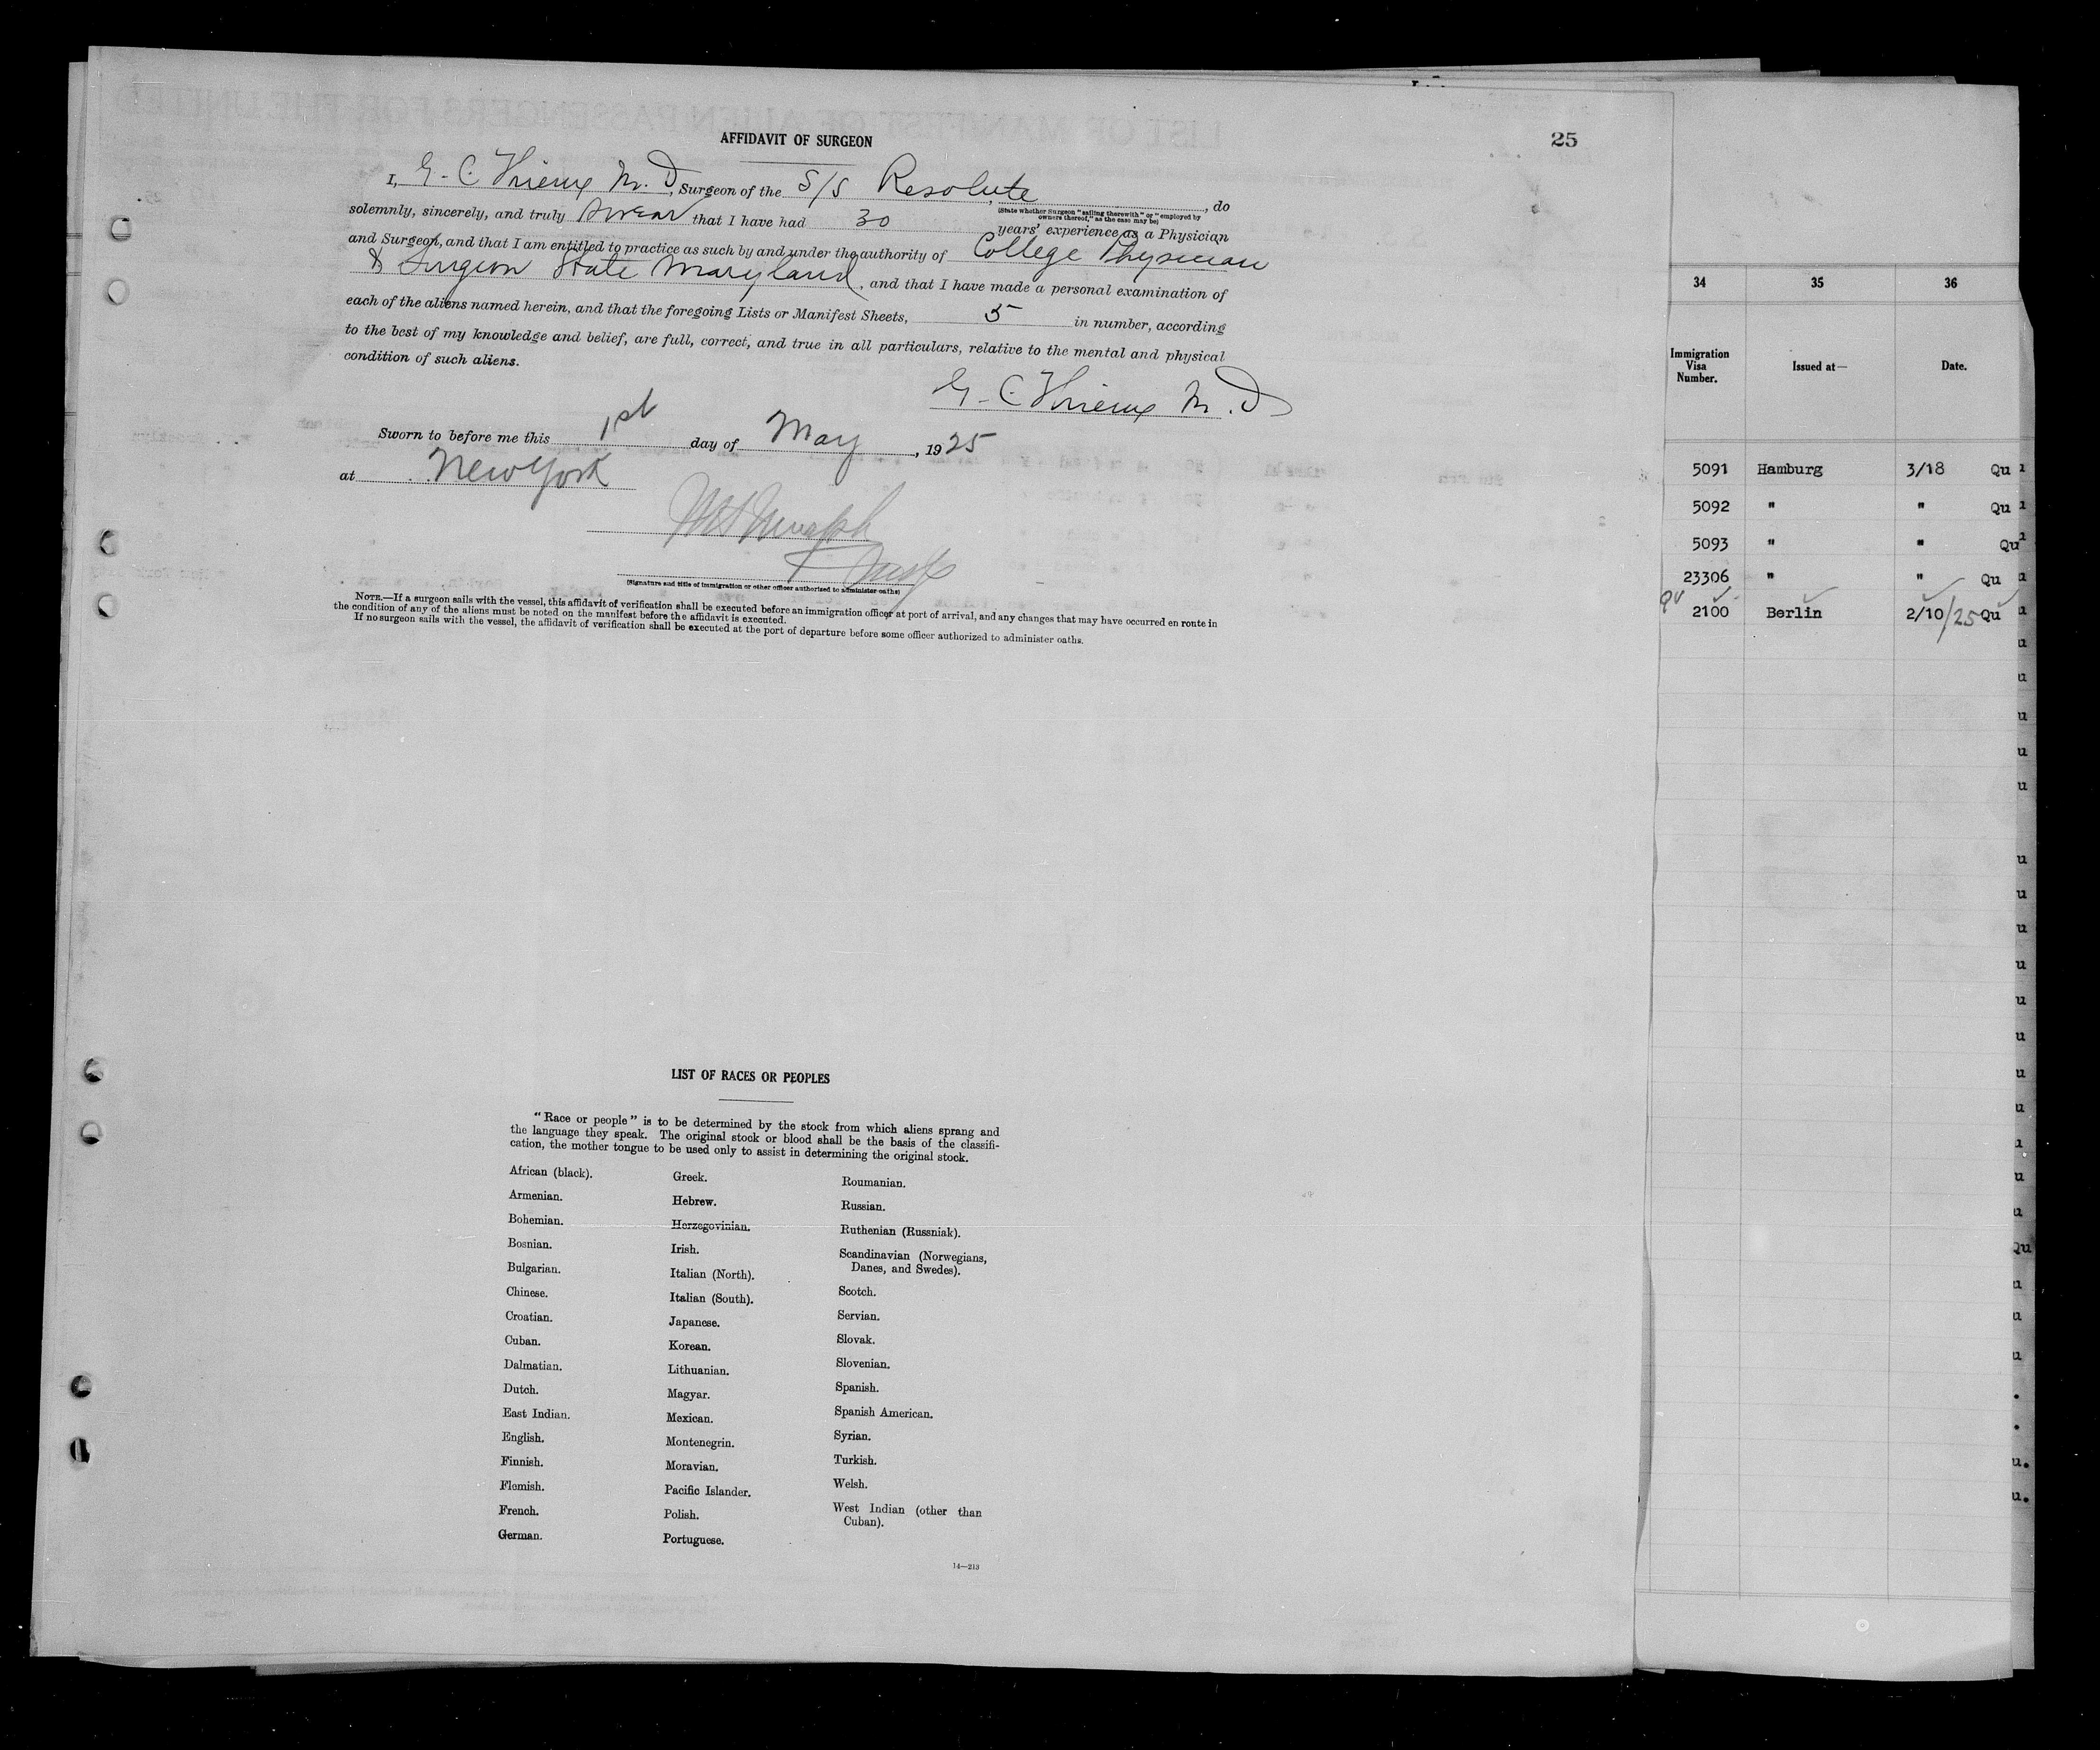 25
AFFIDAVIT OF SURGEON
I, G. C. M. D., Surgeon of the S/S Resolute, do
(State whether Surgeon "sailing therewith" or "employed by owners thereof," as the case may be)
solemnly, sincerely, and truly swear that I have had 30 years' experience as a Physician
and Surgeon, and that I am entitled to practice as such by and under the authority of College Physician
& Surgeon State Maryland, and that I have made a personal examination of
each of the aliens named herein, and that the foregoing Lists or Manifest Sheets, 5 in number, according
to the best of my knowledge and belief, are full, correct, and true in all particulars, relative to the mental and physical
condition of such aliens.
G. C. M. D
Sworn to before me this 1st day of May, 1925
at New York
(Signature and title of immigration or other officer authorized to administer oaths)
NOTE.—If a surgeon sails with the vessel, this affidavit of verification shall be executed before an immigration officer at port of arrival, and any changes that may have occurred en route in
the condition of any of the aliens must be noted on the manifest before the affidavit is executed.
If no surgeon sails with the vessel, the affidavit of verification shall be executed at the port of departure before some officer authorized to administer oaths.
LIST OF RACES OR PEOPLES
"Race or people" is to be determined by the stock from which aliens sprang and
the language they speak. The original stock or blood shall be the basis of the classifi-
cation, the mother tongue to be used only to assist in determining the original stock.
African (black).
Armenian.
Bohemian.
Bosnian.
Bulgarian.
Chinese.
Croatian.
Cuban.
Dalmatian.
Dutch.
East Indian.
English.
Finnish.
Flemish.
French.
German.
Greek.
Hebrew.
Herzegovinian.
Irish.
Italian (North).
Italian (South).
Japanese.
Korean.
Lithuanian.
Magyar.
Mexican.
Montenegrin.
Moravian.
Pacific Islander.
Polish.
Portuguese.
Roumanian.
Russian.
Ruthenian (Russniak).
Scandinavian (Norwegians,
Danes, and Swedes).
Scotch.
Servian.
Slovak.
Slovenian.
Spanish.
Spanish American.
Syrian.
Turkish.
Welsh.
West Indian (other than
Cuban).
14—213
34 35 36
Immigration
Visa
Number.
Issued at—
Date.
5091 Hamburg 3/18 Qu
5092 " " Qu
5093 " " Qu
23306 " " Qu
QV 2100 Berlin 2/10/25 Qu